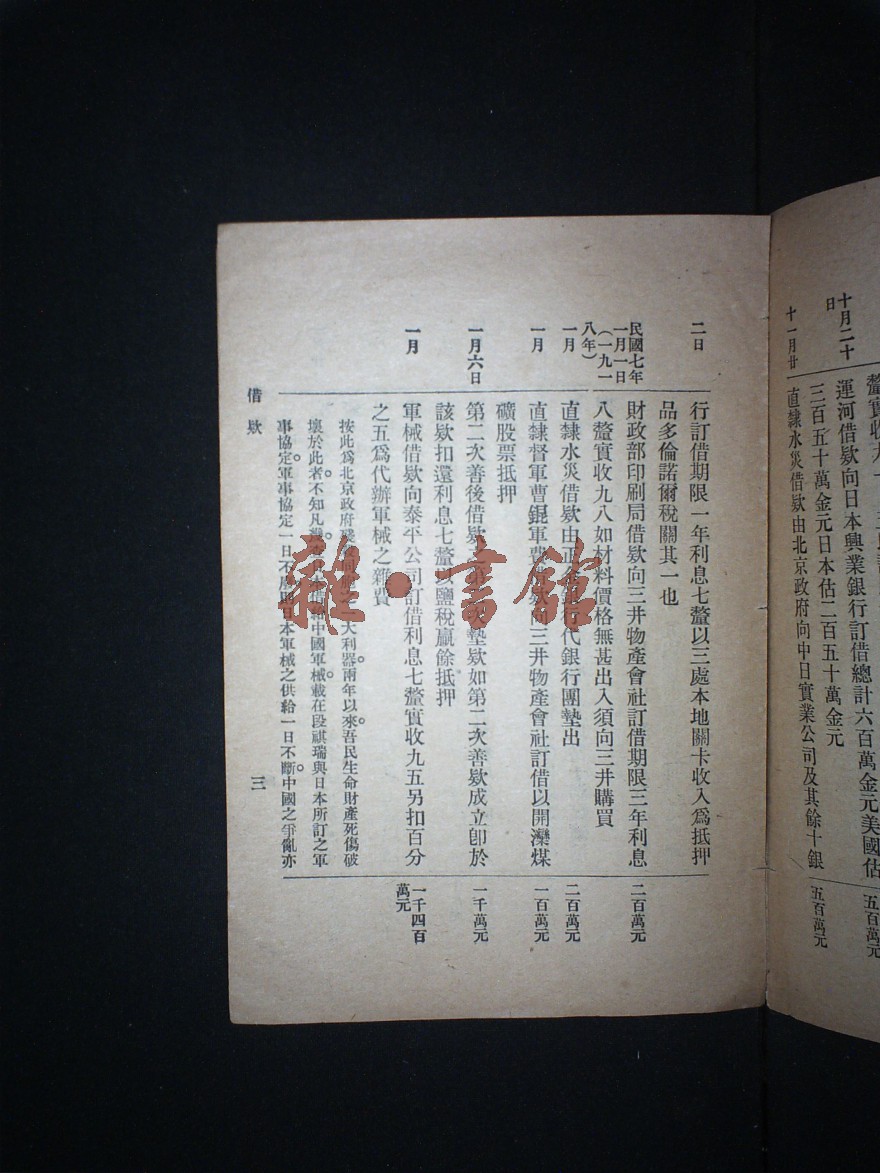 十月二十日
運河借欵向日本興業銀行訂借總計六百萬金元美國估
五百萬元
三百五十萬金元日本估二百五十萬金元
十一月廿
直隸水災借欵由北京政府向中日實業公司及其餘十銀
五百萬元
二日
行訂借期限一年利息七釐以三處本地關卡收入爲抵押
品多倫諾爾稅關其一也
民國七年一月一日（一九一八年）
財政部印刷局借欵向三井物產會社訂借期限三年利息
二百萬元
八釐實收九八如材料價格無甚出入須向三井購買
一月
直隸水災借欵由正金銀行代銀行團墊出
二百萬元
一月
直隸督軍曹錕軍費借欵向三井物產會社訂借以開灤煤
一百萬元
礦股票抵押
一月六日
第二次善後借欵之第 次墊欵如第二次善欵成立卽於
一千萬元
該欵扣還利息七釐以鹽稅贏餘抵押
一月
軍械借欵向泰平公司訂借利息七釐實收九五另扣百分
一千四百萬元
之五爲代辦軍械之雜費
按此爲北京政府殘 同胞之 大利器。兩年以來。吾民生命財產死傷破
壞於此者。不知凡幾。 中國軍械。載在段祺瑞與日本所訂之軍
事協定。軍事協定一日不廢則日本軍械之供給一日不斷。中國之爭亂亦
借欵
三
雜·書館